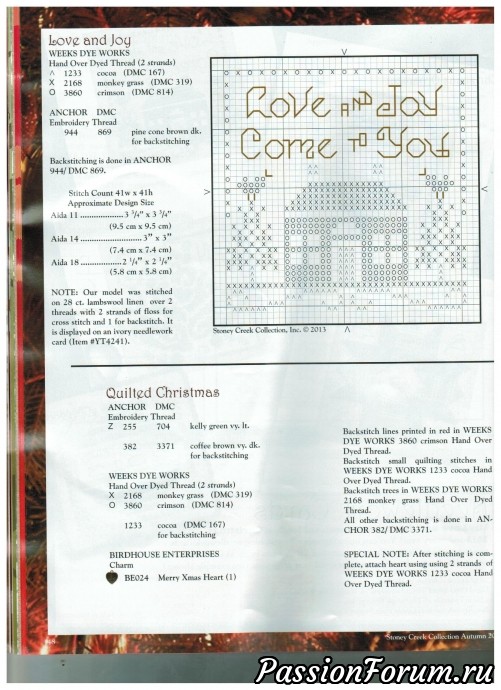 Love and Joy
WEEKS DYE WORKS
Hand Over Dyed Thread (2 strands)
Λ 1233 cocoa (DMC 167)
X 2168 monkey grass (DMC 319)
O 3860 crimson (DMC 814)
ANCHOR DMC
Embroidery Thread
944 869 pine cone brown dk.
for backstitching
Backstitching is done in ANCHOR
944/ DMC 869.
Stitch Count 41w x 41h
Approximate Design Size
Aida 11 .................... 3 3/4" x 3 3/4"
(9.5 cm x 9.5 cm)
Aida 14 ............................ 3" x 3"
(7.4 cm x 7.4 cm)
Aida 18 .................. 2 1/4" x 2 1/4"
(5.8 cm x 5.8 cm)
NOTE: Our model was stitched
on 28 ct. lambswool linen over 2
threads with 2 strands of floss for
cross stitch and 1 for backstitch. It
is displayed on an ivory needlework
card (Item #YT4241).
Love AND Joy
Come TO You
Stoney Creek Collection, Inc. © 2013
Quilted Christmas
ANCHOR DMC
Embroidery Thread
Z 255 704 kelly green vy. lt.
382 3371 coffee brown vy. dk.
for backstitching
WEEKS DYE WORKS
Hand Over Dyed Thread (2 strands)
X 2168 monkey grass (DMC 319)
O 3860 crimson (DMC 814)
1233 cocoa (DMC 167)
for backstitching
BIRDHOUSE ENTERPRISES
Charm
BE024 Merry Xmas Heart (1)
Backstitch lines printed in red in WEEKS
DYE WORKS 3860 crimson Hand Over
Dyed Thread.
Backstitch small quilting stitches in
WEEKS DYE WORKS 1233 cocoa Hand
Over Dyed Thread.
Backstitch trees in WEEKS DYE WORKS
2168 monkey grass Hand Over Dyed
Thread.
All other backstitching is done in AN-
CHOR 382/ DMC 3371.
SPECIAL NOTE: After stitching is com-
plete, attach heart using using 2 strands of
WEEKS DYE WORKS 1233 cocoa Hand
Over Dyed Thread.
Stoney Creek Collection Autumn 20
PassionForum.ru